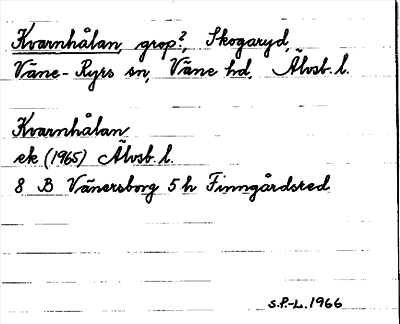 Kvarnhålan, grop?, Skogaryd,
Väne-Ryrs sn, Väne hd, Älvsb. l.
Kvarnhålan
ek (1965) Älvsb. l.
8 B Vänersborg 5 h Finngårdsred
S.P.-L. 1966